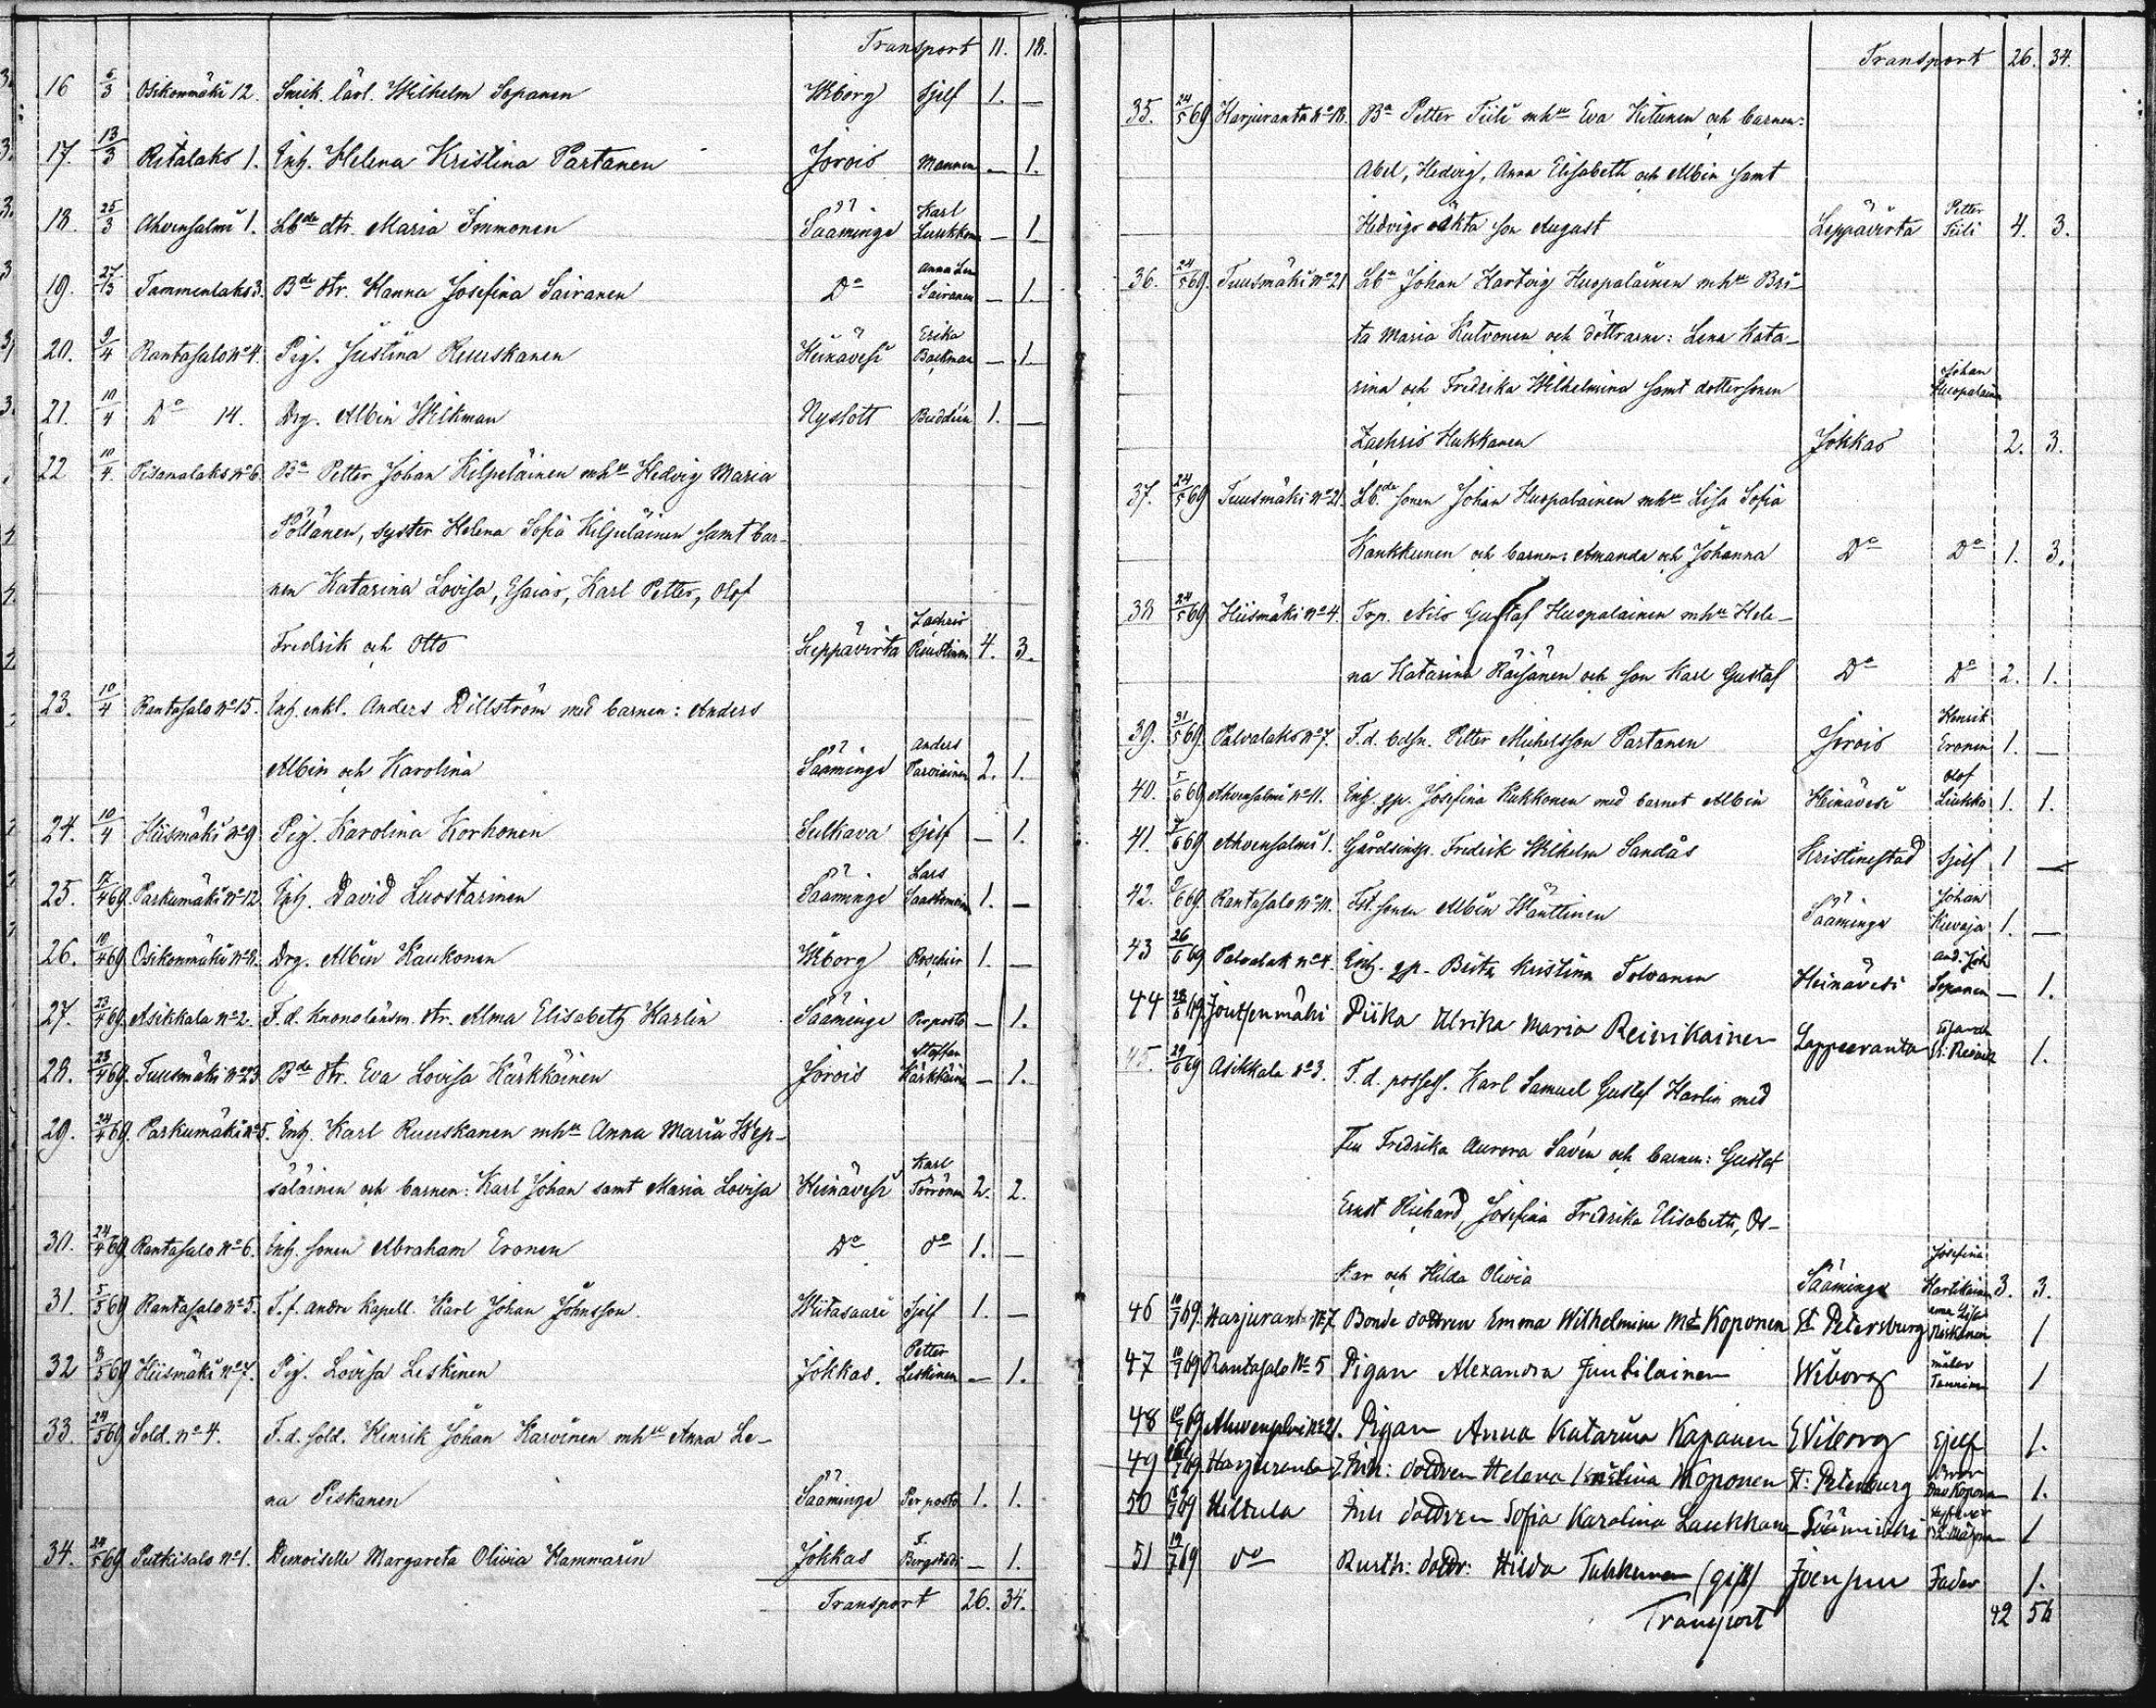 Transport 11. 18.
16 6/3 Osikonmäki 12. Snick. lärl. Wilhelm Sopanen Wiborg Sjelf 1. —
17. 13/3 Ritalaks 1. Enh. Helena Kristina Partanen Jorois Mannen — 1.
18. 25/3 Ahvensalmi 1. Lbde dtr. Maria Immonen Sääminge Karl Luukkonen — 1
19. 27/3 Tammenlaks 3. Bde dtr. Hanna Josefina Sairanen Do Anna Lena Sairanen — 1.
20. 9/4 Rantasalo No 4. Pig. Justina Ruuskanen Heinävesi Erika Backman — 1
21. 10/4 Do 14. Drg. Albin Wilkman Nyslott Buddéen 1. —
22 10/4. Pisanalaks No 6. Bn Petter Johan Kilpeläinen mhu Hedvig Maria
Pöllänen, syster Helena Sofia Kilpeläinen samt bar-
nen Katarina Lovisa, Esaias, Karl Petter, Olof
Fredrik och Otto Leppävirta Zachris Ruustinen 4. 3.
23. 10/4 Rantasalo No 15. Enh. enkl. Anders Dillström med barnen: Anders
Albin och Karolina Sääminge Anders Parviainen 2. 1.
24. 10/4 Hiismäki No 9 Pig. Karolina Korhonen Sulkava Sjelf — 1.
25. 17/4 69. Parkumäki No 12 Enh. David Luostarinen Sääminge Lars Saastamoinen 1. —
26. 19/4 69 Osikonmäki No 8. Drg. Albin Kaukonen Wiborg Roschier 1. —
27. 23/4 69. Asikkala No 2. F.d. Kronolänsm. dtr. Alma Elisabeth Harlin Sääminge Per posto — 1.
28. 23/4 69. Tuusmäki No 23 Bde dtr. Eva Lovisa Kärkkäinen Jorois Staffan Kärkkäin — 1.
29. 24/4 69. Parkumäki No 5. Enh. Karl Ruuskanen mhu Anna Maria Wep-
säläinen och barnen: Karl Johan samt Maria Lovisa Heinävesi Karl Törrönen 2. 2.
30. 24/4 69. Rantasalo No 6. Enh. sonen Abraham Eronen Do do 1. —
31. 5/5 69 Rantasalo No 5. T.f. andre Kapell. Karl Johan Johnsson Wiitasaari Sjelf 1. —
32 9/5 69 Hiismäki No 7. Pig. Lovisa Leskinen Jokkas. Petter Leskinen — 1.
33. 24/5 69 Sold. No 4. F.d. sold. Henrik Johan Karvinen mhu Anna Le-
na Piskanen Sääminge Per posto 1. 1.
34. 24/5 69 Putkisalo No 1. Demoiselle Margareta Olivia Hammarin Jokkas F. Bergstadi — 1.
Transport 26. 34.
Transport 26. 34.
35. 24/5 69 Harjuranta No 18. Bn Petter Tiili mhu Eva Hitunen och barnen:
Abel, Hedvig, Anna Elisabeth och Albin samt
Hedvigs oäkta son August Leppävirta Petter Tiili 4. 3.
36. 24/5 69. Tuusmäki No 21 Lbn Johan Hartvig Huopalainen mhu Bri-
ta Maria Kutvonen och döttrarne: Lena Kata-
rina och Fredrika Wilhelmina samt dottersonen Johan Huopalain
Zachris Hukkanen Jokkas 2. 3.
37. 24/5 69 Tuusmäki No 21. Lbde sonen Johan Huopalainen mhu Lisa Sofia
Kankkunen och barnen: Amanda och Johanna Do Do 1. 3.
38 24/5 69 Hiismäki No 4. Trp. Nils Gustaf Huopalainen mhu Hele-
na Katarina Räisänen och son Karl Gustaf Do Do 2. 1.
39. 31/5 69. Palvalaks No 7. F.d. bdsn. Petter Michelsson Partanen Jorois Henrik Eronen 1. —
40. 5/6 69 Ahvensalmi No 11. Enh. gp. Josefina Kukkonen med barnet Albin Heinävesi Olof Liukko 1. 1.
41. 7/6 69 Ahvensalmi 1. Gårdsinsp. Fredrik Wilhelm Sandås Kristinestad Sjelf 1 —
42. 9/6 69. Rantasalo No 10. Tst. sonen Albin Wänttinen Sääminge Johan Kuvaja 1. —
43 26/6 69 Palvalak No 4. Enh. gp. Brita Kristina Tolvanen Heinävesi And. Joh Sopanen — 1.
44 28/6 69 Joutsenmäki Piika Ulrika Maria Reinikainen Lappeenranta 1.
45. 29/6 69 Asikkala No 3. F.d. possess. Karl Samuel Gustaf Harlin med
Fru Fredrika Aurora Savén och barnen: Gustaf
Ernst Richard, Josefina Fredrika Elisabeth, Os-
kar och Hilda Olivia Sääminge Josefina Hartikainen 3. 3.
46 10/7 69. Harjurant No 7 Bonde dottren Emma Wilhelmina Md Koponen St Petersburg 1
47 10/7 69 Rantasalo No 5 Pigan Alexandra Juntilainen Wiborg målar Tanninen 1
48 10/7 69 Ahvensalmi No 21. Pigan Anna Katarina Kapanen Wiborg Sjelf 1.
49 69. Harjuranta 7 Inh: dottren Helena Kristina Koponen St: Petersburg Koponen 1.
50 69 Kiltula Inh dottren Sofia Karolina Laukkanen Sääminki 1
51 69 do Rusth: dottr: Hilda Tuhkunen (gift) Joensuu Fader 1.
Transport 42 56